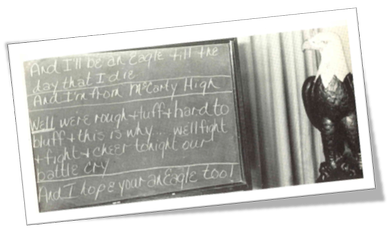 And I'll be an Eagle till the
day that I die
And I'm from McCarty High
Well were rough + tuff + hard to
bluff + this is why... we'll fight
+ fight + cheer tonight our
battle cry
And I hope your an Eagle too!